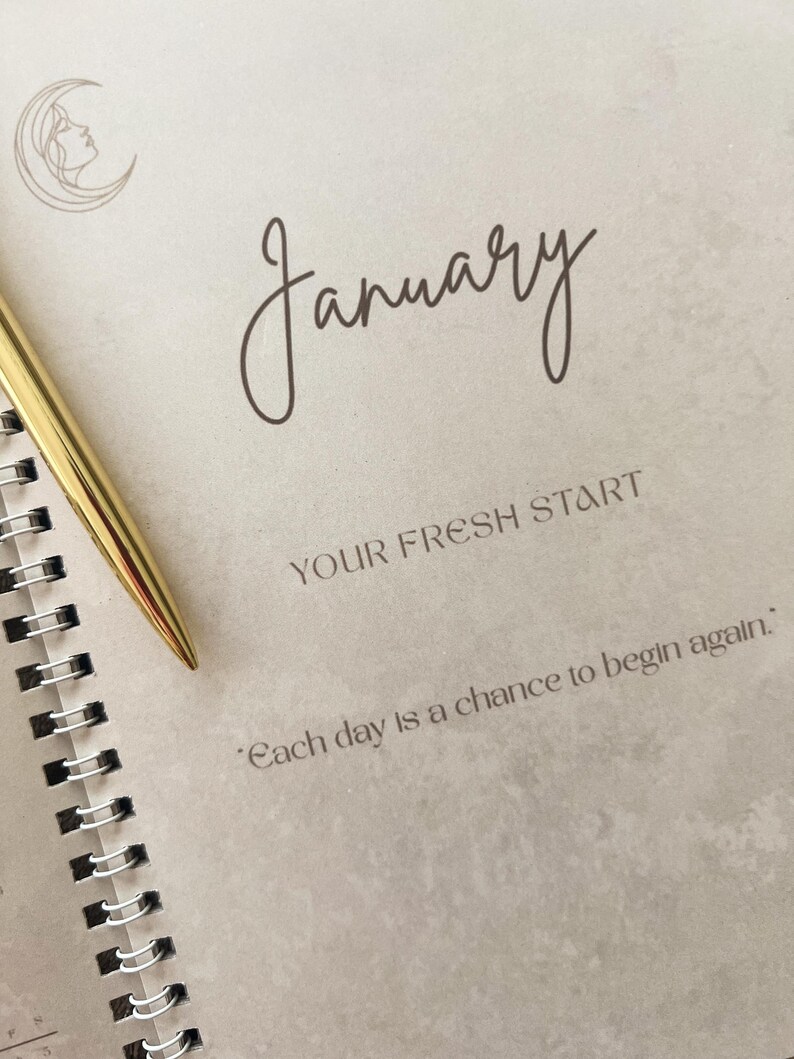 January
YOUR FRESH START
"Each day is a chance to begin again."
F S
3